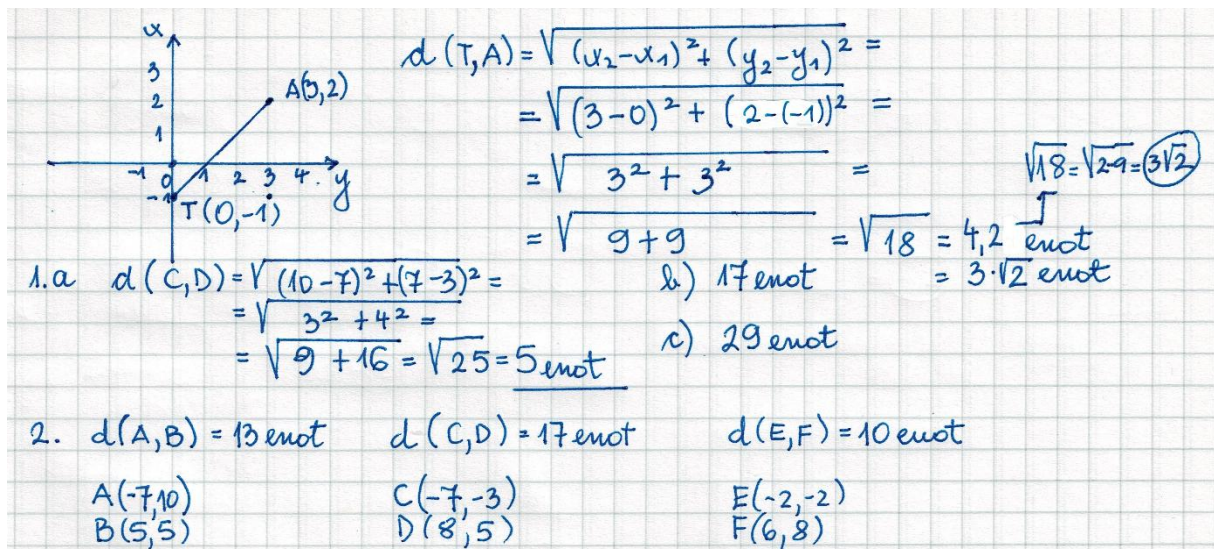 x
3
2
1
-1 0 1 2 3 4. y
-1
A(3,2)
T(0,-1)
d(T,A) = √(x₂-x₁)² + (y₂-y₁)² =
= √(3-0)² + (2-(-1))² =
= √3² + 3² =
= √9+9 = √18 = 4,2 enot
= 3·√2 enot
√18 = √2·9 = 3√2
1.a d(C,D) = √(10-7)² + (7-3)² =
= √3² + 4² =
= √9 + 16 = √25 = 5 enot
b) 17 enot
c) 29 enot
2. d(A,B) = 13 enot d(C,D) = 17 enot d(E,F) = 10 enot
A(-7,10) C(-7,-3) E(-2,-2)
B(5,5) D(8,5) F(6,8)